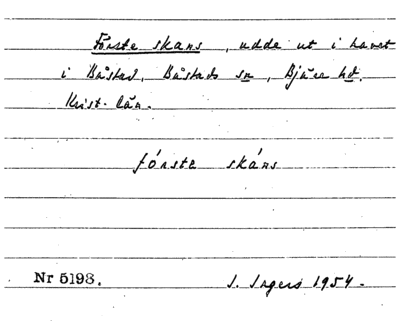 Förste skans, udde ut i havet
i Båstad, Båstads sn, Bjäre hd.
Krist. län.
fórste skáns
Nr 5193. I. Ingers 1954.